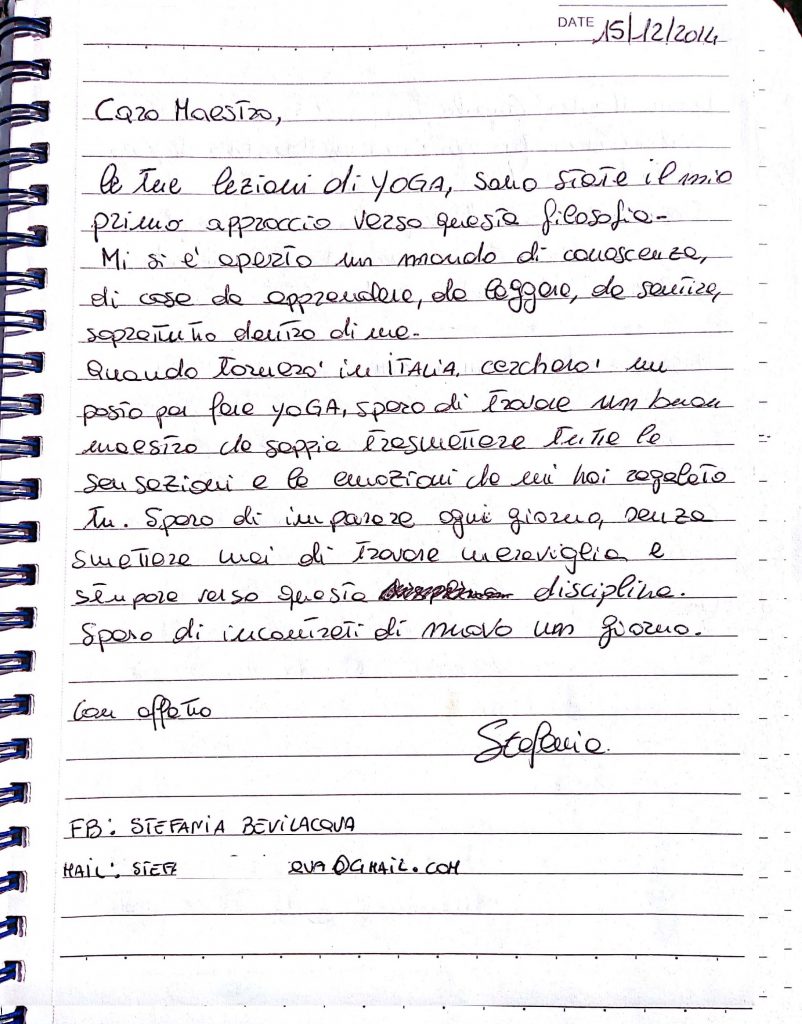 DATE 15/12/2014
Caro Maestro,
le tue lezioni di YOGA, sono state il mio
primo approccio verso questa filosofia-
Mi si è aperto un mondo di conoscenza,
di cose da apprendere, da leggere, da sentire,
sopratutto dentro di me.
Quando tornerò in ITALIA, cercherò un
posto per fare YOGA, spero di trovare un buon
maestro che sappia trasmettere tutte le
sensazioni e le emozioni che mi hai regalato
tu. Spero di imparare ogni giorno, senza
smettere mai di trovare meraviglia e
verso questa disciplina.
Spero di incontrati di nuovo un giorno.
Con affetto
Stefania.
FB: STEFANIA BEVILACQUA
MAIL: STEF QUA@GMAIL.COM